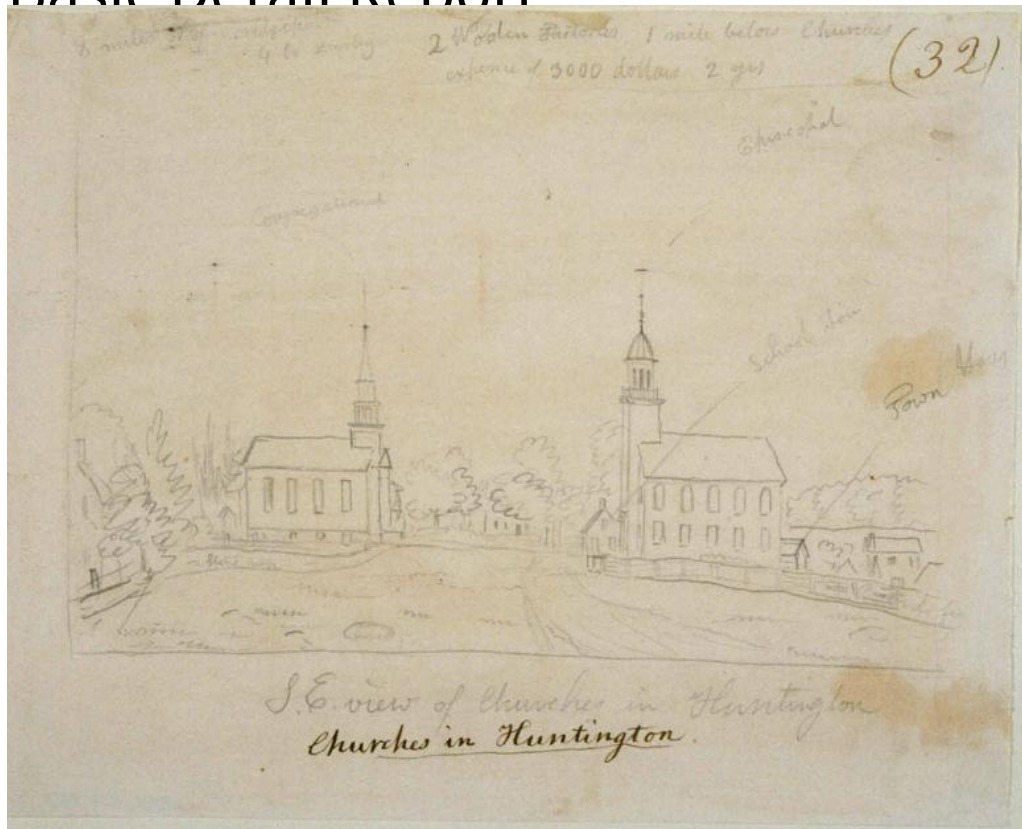 Basic Detail Report
8 miles
4 to
2 Wooden Factories 1 mile below Churches
expence of 3000 dollars 2 yrs
(32)
Episcopal
Congregational
School Hou
Town Hous
S.E. view of Churches in Huntington
Churches in Huntington.